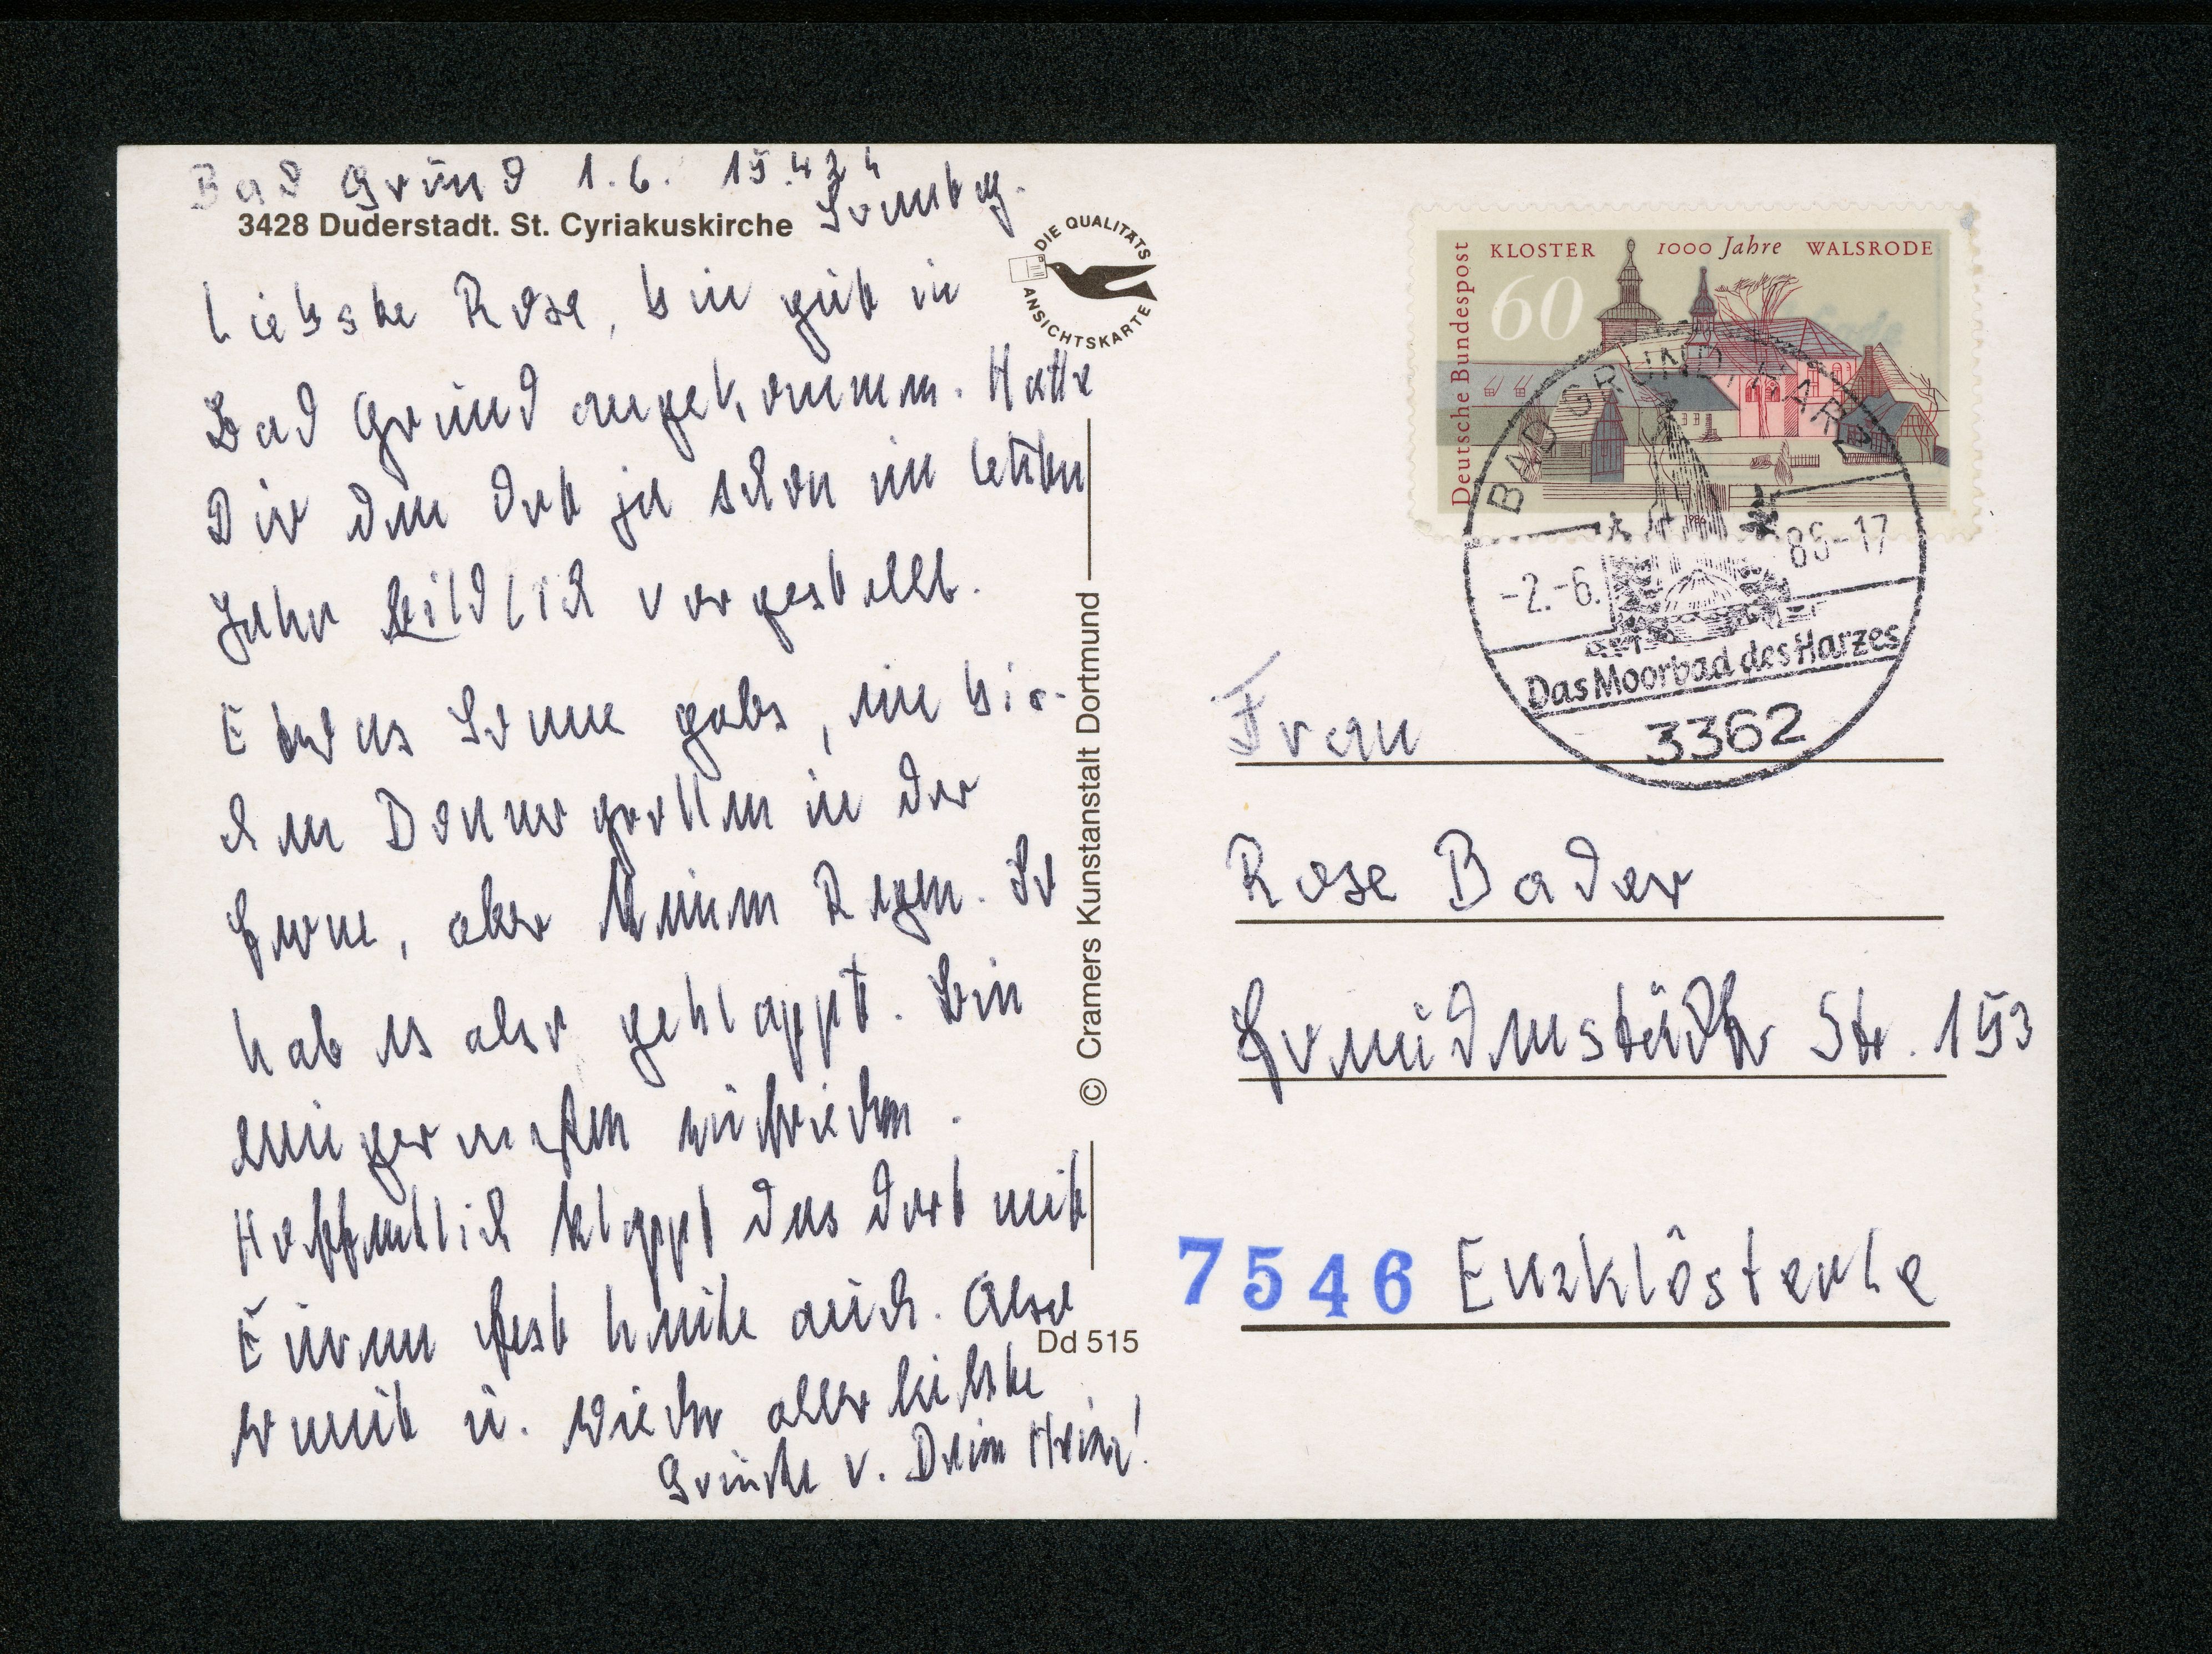 Bad Grund 1.6. 15.42 h
Sonntag.
3428 Duderstadt. St. Cyriakuskirche
DIE QUALITÄTS
ANSICHTSKARTE
Liebste Rose, bin gut in
Bad Grund angekommen. Hatte
Dir den Ort ja schon im letzten
Jahr bildlich vorgestellt.
Etwas Sonne gabs, ein biß-
chen Donnergrollen in der
Ferne, aber keinen Regen. So
hab es also geklappt. Bin
einigermaßen zufrieden.
Hoffentlich klappt das dort mit
Eurem Fest heute auch. Also
soweit u. wieder allerliebste
Grüße v. Deinem Heinz!
© Cramers Kunstanstalt Dortmund
Dd 515
Deutsche Bundespost
KLOSTER 1000 Jahre WALSRODE
60
1986
BAD GRUND HARZ
-2.-6. 86-17
Das Moorbad des Harzes
3362
Frau
Rose Bader
Freudenstädter Str. 153
7546 Enzklösterle